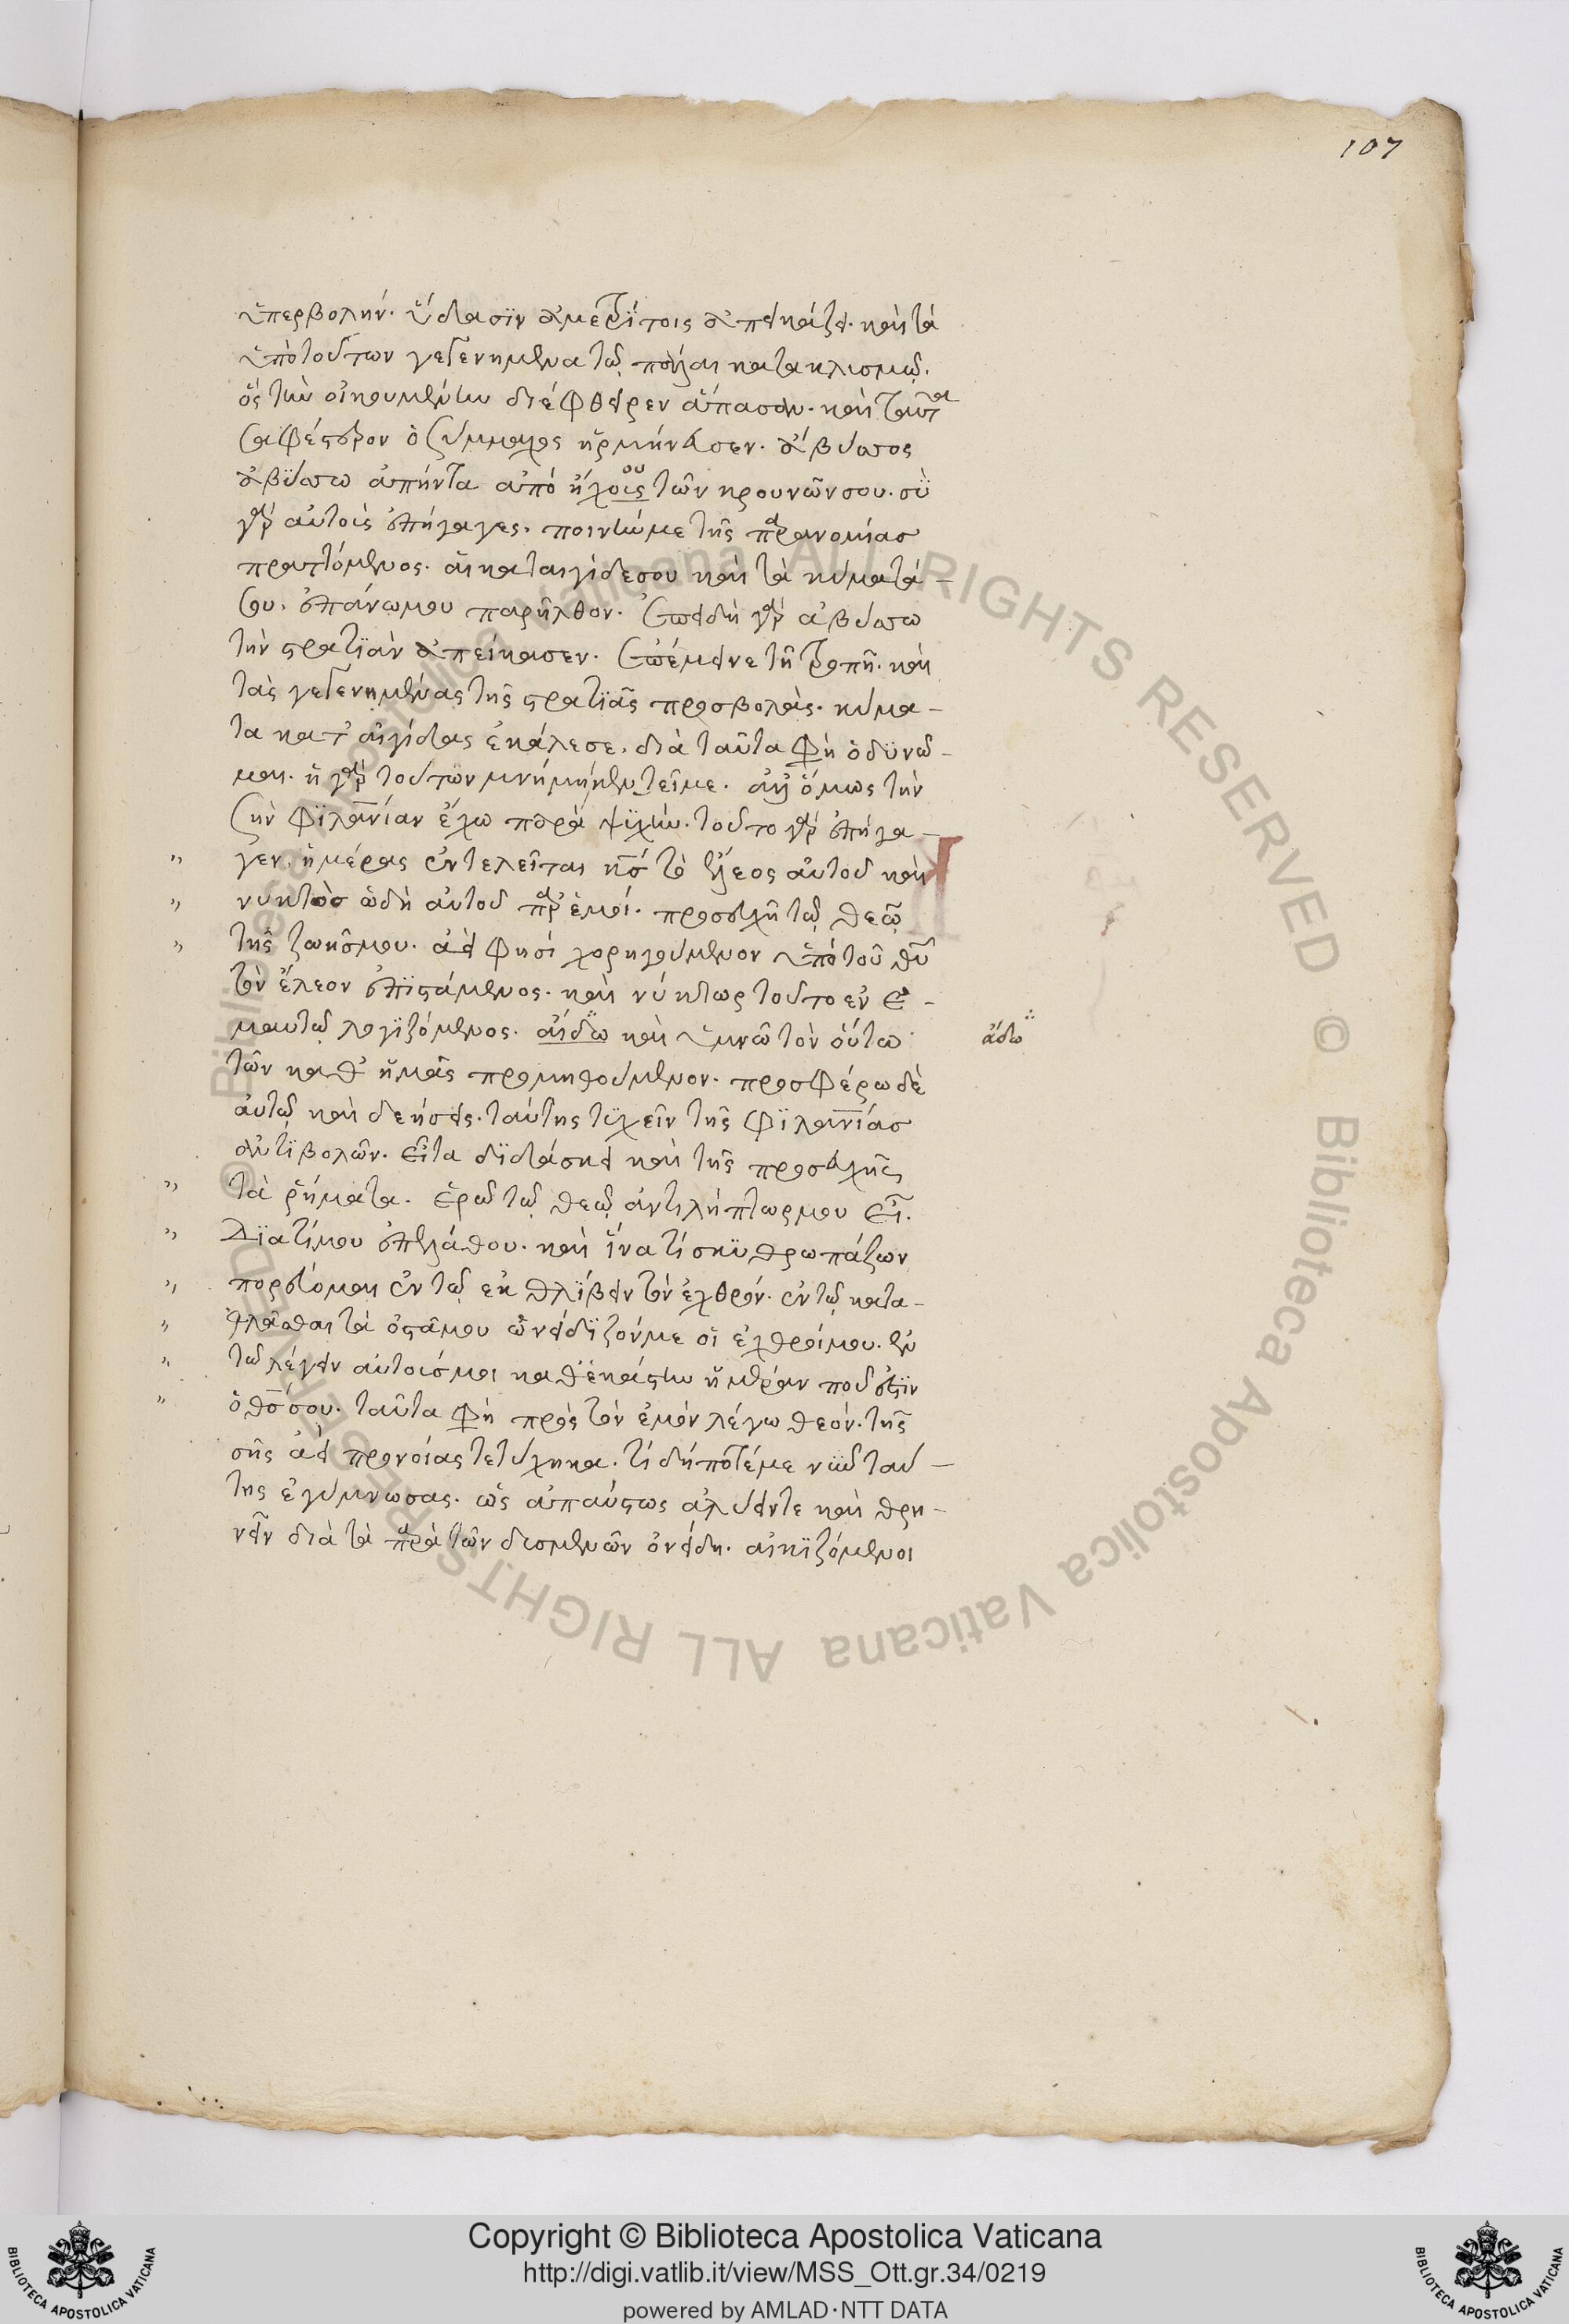 107
ὑπερβολήν· ὕδασϊν ἀμετρΐτοις ἀπεικάζει· καὶ τὰ
ὑπὸ τούτων γεγενημένα τῷ πάλαι κατακλισμῷ·
ὃς τὴν οἰκουμένην διέφθειρεν ἅπασαν· καὶ ταῦτα
σαφέστερον ὁ σύμμαχος ἡρμήνευσεν· ἄβυσσος
ἀβύσσω ἀπήντα ἀπὸ ἤχοις τῶν κρουνῶν σου· σὺ
γὰρ αὐτοὶς ἐπήγαγες· ποινήν με τῆς παρανομίασ
πραττόμενος· αἱ καταιγίδεσου καὶ τὰ κύματά-
σου· ἐπάνωμου παρῆλθον· ἐπειδὴ γὰρ ἀβύσσω
τὴν στρατϊὰν ἀπείκασεν· ἐπέμεινε τῆ τροπῆ· καὶ
τὰς γεγενημένας τῆς στρατϊᾶς προσβολὰς· κύμα-
τα κατ αἰγίδας ἐκάλεσε· διὰ ταῦτα φη ὀδϋνῶ-
μαι· ἡ γὰρ τούτων μνήμη κεντεῖ με· ἀλλ ὅμως τὴν
σὴν φϊλανίαν ἔχω παρὰ ψϋχήν· τοῦτο γὰρ ἐπήγα-
" γεν· ἡμέρας ἐντελεῖται κς τὸ ἔλεος αὐτοῦ καὶ
" νυκτὸσ ὠδὴ αὐτοῦ παρ ἐμοί· προσευχὴ τῷ θεῷ
" τῆς ζωῆσμου· ἀεὶ φησί χορηγούμενον ὑπὸ τοῦ θυ
τὸν ἔλεον ἐπϊστάμενος· καὶ νύκτωρ τοῦτο ἐν ἐ-
μαυτῷ λογϊζόμενος· αἴδω καὶ ὑμνῶ τὸν οὕτω ἄδω
τῶν καθ ἡμᾶς προμηθούμενον· προσφέρω δὲ
αὐτῷ καὶ δεήσεις· ταύτης τϋχεῖν τῆς φϊλανίασ
ἀντϊβολῶν· εἶτα δϊδάσκει καὶ τῆς προσευχῆς
" τὰ ῥήματα· ἐρῶ τῷ θεῷ ἀντιλήπτωρμου εἶ·
" Δϊατίμου ἐπελάθου· καὶ ἵνα τί σκϋθρωπάζων
" πορεύομαι ἐν τῷ ἐκθλΐβειν τὸν ἐχθρόν· ἐν τῷ κατα-
" θλᾶσθαι τὰ ὀστᾶμου ὠνείδϊζόν με οἱ ἐχθροίμου· ἐν
" τῶ λέγειν αὐτοισμοι καθ ἑκάστην ἡμέραν ποῦ ἐστϊν
" ὁ θσσου· ταῦτα φη πρὸς τὸν ἐμὸν λέγω θεόν· τῆς
σῆς ἀεὶ προνοίας τετύχηκα· τί δήποτέ με νῦν ταύ-
της ἐγύμνωσας· ὡς ἀπαύστως ἀλύειν τε καὶ θρη-
νεῖν διὰ τὰ παρὰ τῶν δυσμενῶν ὀνείδη· αἰκϊζόμενοι
Copyright © Biblioteca Apostolica Vaticana
http://digi.vatlib.it/view/MSS_Ott.gr.34/0219
powered by AMLAD·NTT DATA